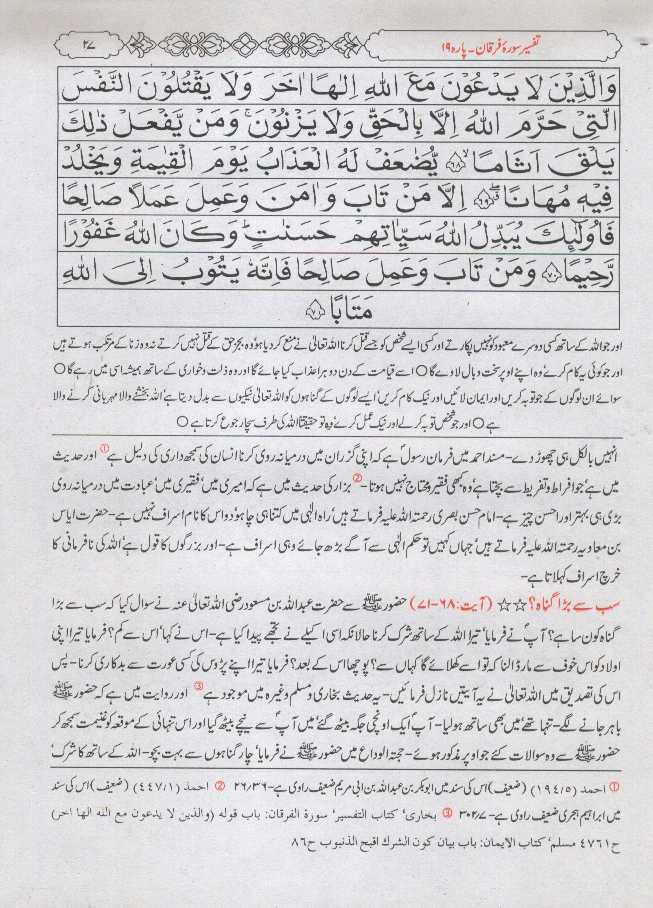 تفسیر سورۂ فرقان۔ پارہ ۱۹
۲۷
وَالَّذِيْنَ لَا يَدْعُوْنَ مَعَ اللّٰهِ اِلٰهًا اٰخَرَ وَلَا يَقْتُلُوْنَ النَّفْسَ
الَّتِيْ حَرَّمَ اللّٰهُ اِلَّا بِالْحَقِّ وَلَا يَزْنُوْنَ ۚ وَمَنْ يَّفْعَلْ ذٰلِكَ
يَلْقَ اَثَامًا ﴿۶۸﴾ يُّضٰعَفْ لَهُ الْعَذَابُ يَوْمَ الْقِيٰمَةِ وَيَخْلُدْ
فِيْهٖ مُهَانًا ﴿۶۹﴾ اِلَّا مَنْ تَابَ وَاٰمَنَ وَعَمِلَ عَمَلًا صَالِحًا
فَاُولٰٓئِكَ يُبَدِّلُ اللّٰهُ سَيِّاٰتِهِمْ حَسَنٰتٍ ؕ وَكَانَ اللّٰهُ غَفُوْرًا
رَّحِيْمًا ﴿۷۰﴾ وَمَنْ تَابَ وَعَمِلَ صَالِحًا فَاِنَّهٗ يَتُوْبُ اِلَى اللّٰهِ
مَتَابًا ﴿۷۱﴾
اور جو اللہ کے ساتھ کسی دوسرے معبود کو نہیں پکارتے اور کسی ایسے شخص کو جسے قتل کرنا اللہ تعالیٰ نے منع کر دیا ہو' وہ بجز حق کے قتل نہیں کرتے نہ وہ زنا کے مرتکب ہوتے ہیں
اور جو کوئی یہ کام کرے' وہ اپنے اوپر سخت وبال لاوے گا ○ اسے قیامت کے دن دوہرا عذاب کیا جائے گا اور وہ ذلت و خواری کے ساتھ ہمیشہ اسی میں رہے گا ○
سوائے ان لوگوں کے جو توبہ کریں اور ایمان لائیں اور نیک کام کریں' ایسے لوگوں کے گناہوں کو اللہ تعالیٰ نیکیوں سے بدل دیتا ہے' اللہ بخشنے والا مہربانی کرنے والا
ہے ○ اور جو شخص توبہ کر لے اور نیک عمل کرے' وہ تو حقیقتاً اللہ کی طرف سچا رجوع کرتا ہے ○
انہیں بالکل ہی چھوڑ دے۔ مسند احمد میں فرمان رسولؐ ہے کہ اپنی گزران میں درمیانہ روی کرنا انسان کی سمجھ داری کی دلیل ہے ① اور حدیث
میں ہے' جو افراط و تفریط سے بچتا ہے' وہ کبھی فقیر و محتاج نہیں ہوتا۔ ② بزار کی حدیث میں ہے کہ امیری میں' فقیری میں' عبادت میں درمیانہ روی
بڑی ہی بہتر اور احسن چیز ہے۔ امام حسن بصری رحمتہ اللہ علیہ فرماتے ہیں' راہ الٰہی میں کتنا ہی چاہو' دو اس کا نام اسراف نہیں ہے۔ حضرت ایاس
بن معاویہ رحمتہ اللہ علیہ فرماتے ہیں' جہاں کہیں تو حکم الٰہی سے آگے بڑھ جائے وہی اسراف ہے۔ اور بزرگوں کا قول ہے' اللہ کی نافرمانی کا
خرچ اسراف کہلاتا ہے۔
سب سے بڑا گناہ؟ ☆☆ (آیت: ۶۸۔۷۱) حضور ﷺ سے حضرت عبداللہ بن مسعود رضی اللہ تعالیٰ عنہ نے سوال کیا کہ سب سے بڑا
گناہ کون سا ہے؟ آپؐ نے فرمایا' تیرا اللہ کے ساتھ شرک کرنا حالانکہ اسی اکیلے نے تجھے پیدا کیا ہے۔ اس نے کہا' اس سے کم؟ فرمایا تیرا اپنی
اولاد کو اس خوف سے مار ڈالنا کہ تو اسے کھلائے گا کہاں سے؟ پوچھا اس کے بعد؟ فرمایا' تیرا اپنے پڑوس کی کسی عورت سے بدکاری کرنا۔ پس
اس کی تصدیق میں اللہ تعالیٰ نے یہ آیتیں نازل فرمائیں۔ یہ حدیث بخاری و مسلم وغیرہ میں موجود ہے ③ اور روایت میں ہے کہ حضور ﷺ
باہر جانے لگے۔ تنہا تھے' میں بھی ساتھ ہولیا۔ آپؐ ایک اونچی جگہ بیٹھ گئے' میں آپؐ سے نیچے بیٹھ گیا اور اس تنہائی کے موقعہ کو غنیمت سمجھ کر
حضور ﷺ سے وہ سوالات کئے جو اوپر مذکور ہوئے۔ حجتہ الوداع میں حضور ﷺ نے فرمایا' چار گناہوں سے بہت بچو۔ اللہ کے ساتھ کا شرک'
① احمد (۱۹۴/۵) (ضعیف) اس کی سند میں ابوبکر بن عبداللہ بن ابی مریم ضعیف راوی ہے۔ ۲۶/۳۶ ② احمد (۴۴۷/۱) (ضعیف) اس کی سند
میں ابراہیم ہجری ضعیف راوی ہے۔ ۳۰۲/۷ ③ بخاری' کتاب التفسیر' سورة الفرقان: باب قوله (والذین لا یدعون مع الله الها اخر)
ح ۴۷۶۱ مسلم' کتاب الایمان: باب بیان کون الشرك اقبح الذنوب ح ۸۶